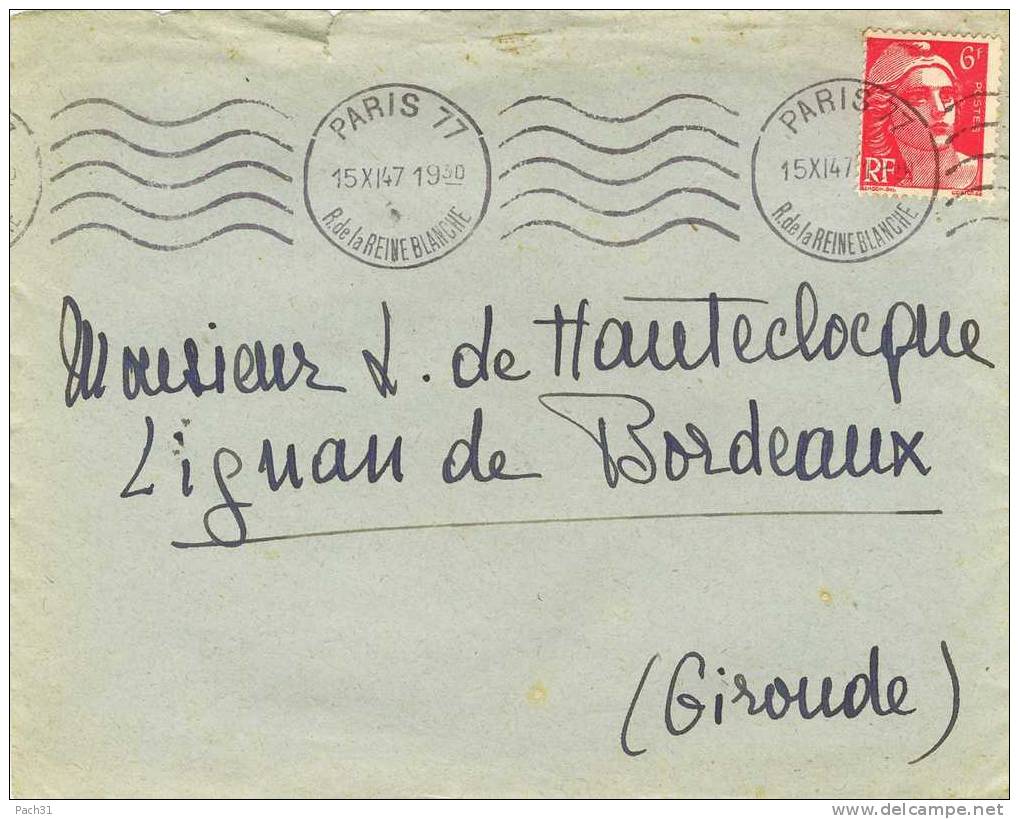 PARIS 77
15 XI 47 19 30
R. de la REINE BLANCHE
PARIS 77
15 XI 47
R. de la REINE BLANCHE
6F
POSTES
RF
Monsieur L. de Hauteclocque
Lignan de Bordeaux
(Gironde)
Pach31
www.delcampe.net